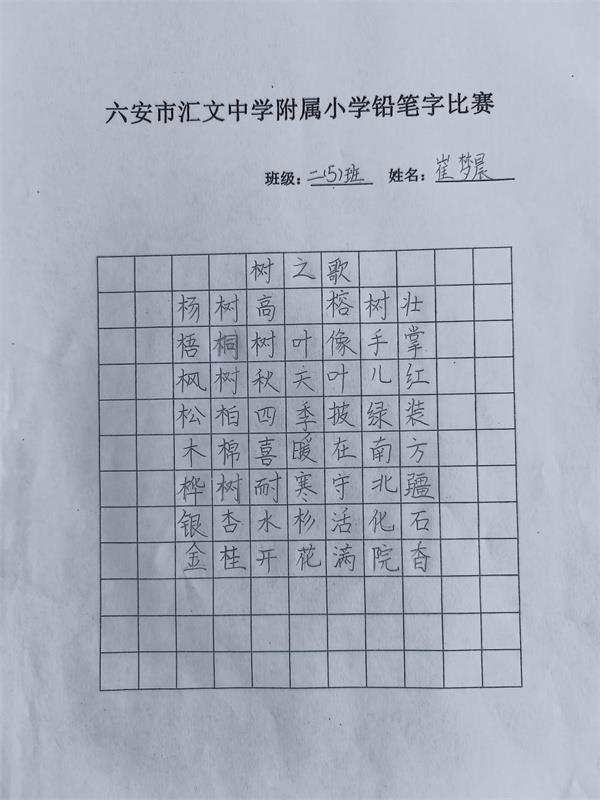 六安市汇文中学附属小学铅笔字比赛
班级：二(5)班 姓名：崔梦晨
树之歌
杨树高 榕树壮
梧桐树叶像手掌
枫树秋天叶儿红
松柏四季披绿装
木棉喜暖在南方
桦树耐寒守北疆
银杏水杉活化石
金桂开花满院香